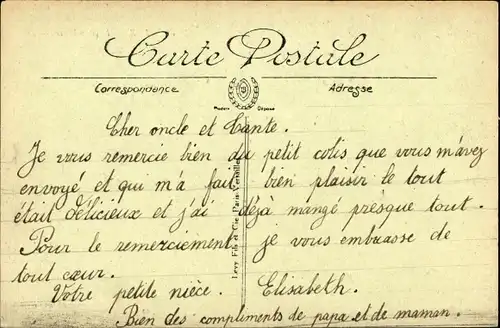 Carte Postale
Correspondance Adresse
Modèle Déposé
Cher oncle et Tante.
Je vous remercie bien du petit colis que vous m'avez
envoyé et qui m'a fait bien plaisir le tout
était délicieux et j'ai déjà mangé presque tout.
Pour le remerciement je vous embrasse de
tout cœur.
Votre petite nièce. Elisabeth.
Bien des compliments de papa et de maman.
Levy Fils et Cie, Paris